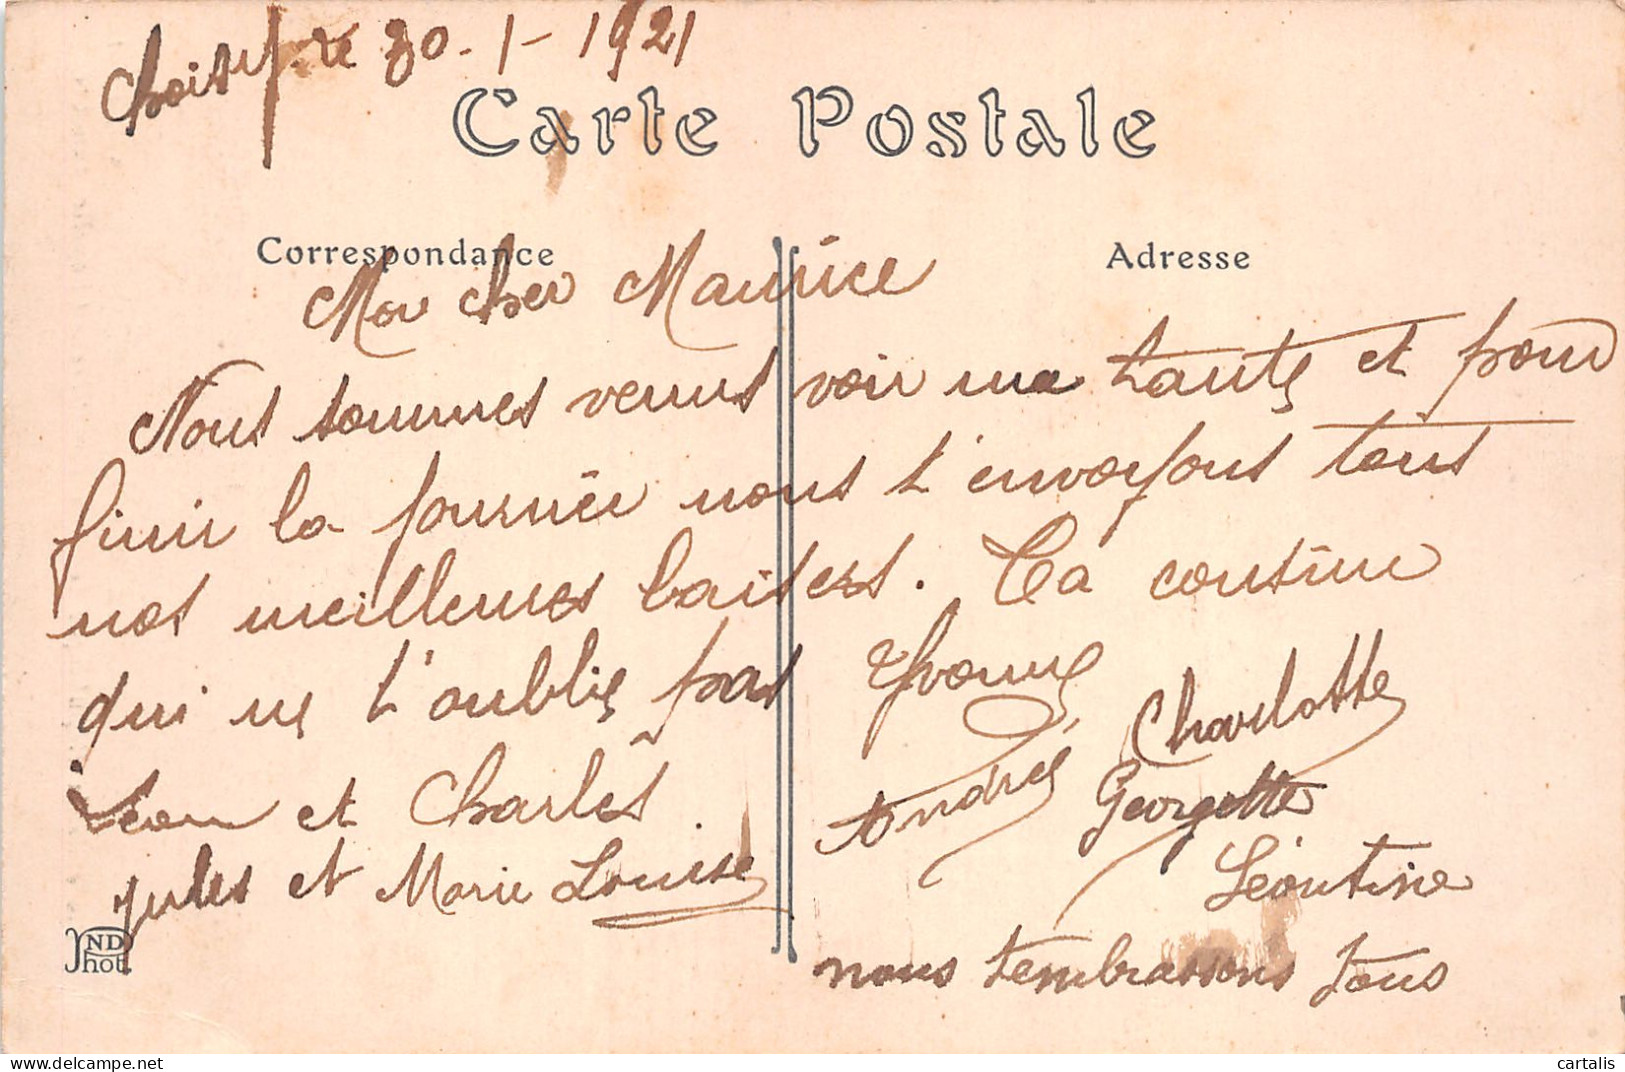 Choisy le 30-1-1921
Carte Postale
Correspondance
Adresse
Mon cher Maurice
Nous sommes venus voir ma tante et pour
finir la journée nous t'envoyons tous
nos meilleures baisers. Ta cousine
qui ne t'oublie pas Yvonne
Charlotte
Léon et Charles
André
Georgette
Jules et Marie Louise
Léontine
nous tembrassons tous
ND
Phot
cartalis